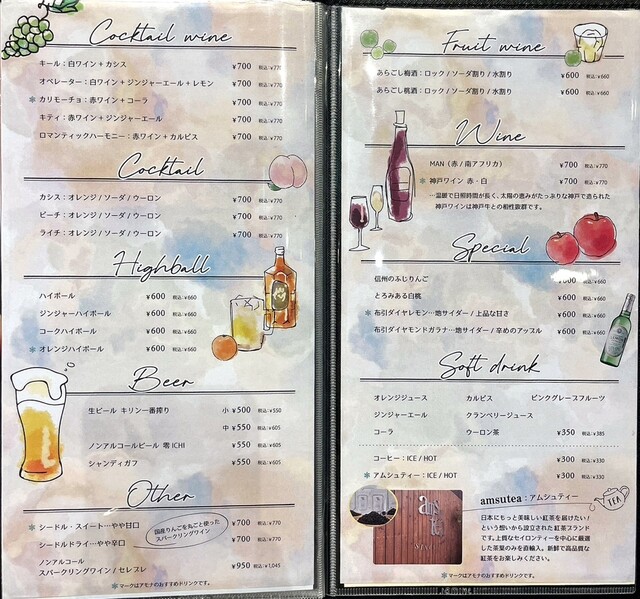 Cocktail wine
キール：白ワイン＋カシス ¥700 税込/¥770
オペレーター：白ワイン＋ジンジャーエール＋レモン ¥700 税込/¥770
＊カリモーチョ：赤ワイン＋コーラ ¥700 税込/¥770
キティ：赤ワイン＋ジンジャーエール ¥700 税込/¥770
ロマンティックハーモニー：赤ワイン＋カルピス ¥700 税込/¥770
Cocktail
カシス：オレンジ / ソーダ / ウーロン ¥700 税込/¥770
ピーチ：オレンジ / ソーダ / ウーロン ¥700 税込/¥770
ライチ：オレンジ / ソーダ / ウーロン ¥700 税込/¥770
Highball
ハイボール ¥600 税込/¥660
ジンジャーハイボール ¥600 税込/¥660
コークハイボール ¥600 税込/¥660
＊オレンジハイボール ¥600 税込/¥660
Beer
生ビール キリン一番搾り 小 ¥500 税込/¥550
中 ¥550 税込/¥605
ノンアルコールビール 零ICHI ¥550 税込/¥605
シャンディガフ ¥550 税込/¥605
Other
＊シードル・スイート…やや甘口 ¥700 税込/¥770
シードルドライ…やや辛口 ¥700 税込/¥770
国産りんごを丸ごと使った
スパークリングワイン
ノンアルコール
スパークリングワイン / セレブレ ¥950 税込/¥1,045
＊マークはアモナのおすすめドリンクです。
Fruit wine
あらごし梅酒：ロック / ソーダ割り / 水割り ¥600 税込/¥660
あらごし桃酒：ロック / ソーダ割り / 水割り ¥600 税込/¥660
Wine
MAN（赤 / 南アフリカ） ¥700 税込/¥770
＊神戸ワイン 赤・白 ¥700 税込/¥770
…温暖で日照時間が長く、太陽の恵みがたっぷりな神戸で造られた
神戸ワインは神戸牛との相性抜群です。
Special
信州のふじりんご ¥600 税込/¥660
とろみある白桃 ¥600 税込/¥660
＊布引ダイヤレモン…地サイダー / 上品な甘さ ¥600 税込/¥660
＊布引ダイヤモンドガラナ…地サイダー / 辛めのアップル ¥600 税込/¥660
Soft drink
オレンジジュース カルピス ピンクグレープフルーツ
ジンジャーエール クランベリージュース
コーラ ウーロン茶 ¥350 税込/¥385
コーヒー：ICE / HOT ¥300 税込/¥330
＊アムシュティー：ICE / HOT ¥300 税込/¥330
ams
tea
amsutea：アムシュティー
TEA
日本にもっと美味しい紅茶を届けたい！
という想いから設立された紅茶ブランド
です。上質なセイロンティーを中心に厳選
した茶葉のみを直輸入。新鮮で高品質な
紅茶をお楽しみください。
＊マークはアモナのおすすめドリンクです。